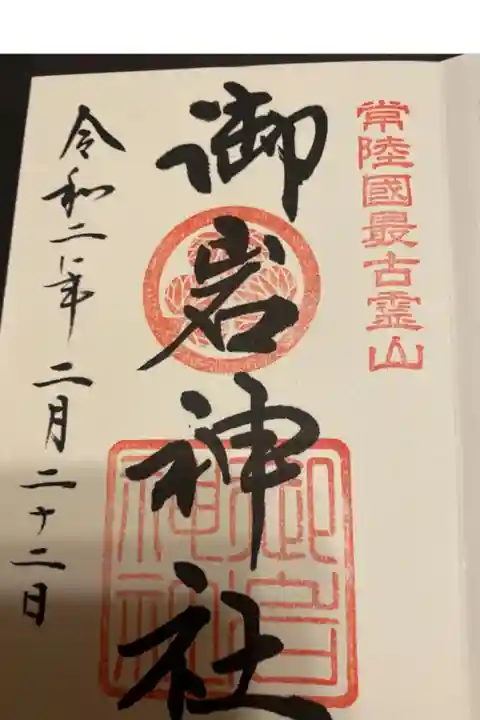 常陸國最古霊山
御岩神社
令和二年二月二十二日
御岩
神社